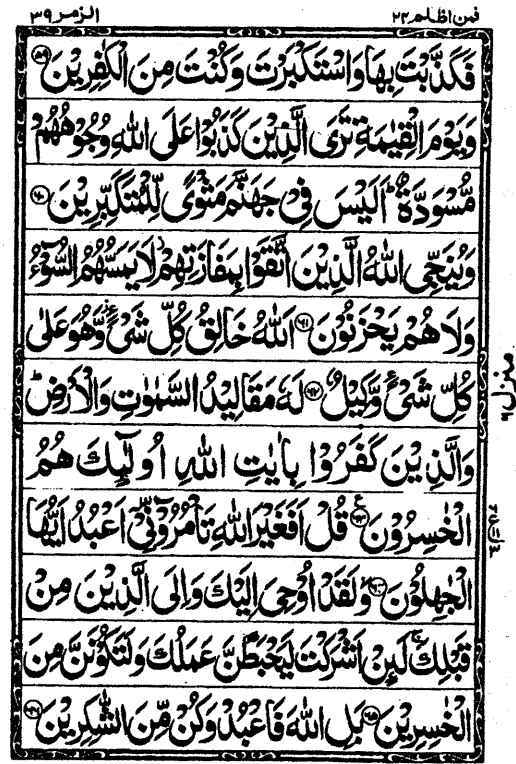 فمن اظلم ٢٤ الزمر ٣٩
فَكَذَّبْتَ بِهَا وَاسْتَكْبَرْتَ وَكُنْتَ مِنَ الْكٰفِرِيْنَ ﴿٥٩﴾
وَيَوْمَ الْقِيٰمَةِ تَرَى الَّذِيْنَ كَذَبُوْا عَلَى اللّٰهِ وُجُوْهُهُمْ
مُّسْوَدَّةٌ ؕ اَلَيْسَ فِيْ جَهَنَّمَ مَثْوًى لِّلْمُتَكَبِّرِيْنَ ﴿٦٠﴾
وَيُنَجِّي اللّٰهُ الَّذِيْنَ اتَّقَوْا بِمَفَازَتِهِمْ ؗ لَا يَمَسُّهُمُ السُّوْٓءُ
وَلَا هُمْ يَحْزَنُوْنَ ﴿٦١﴾ اَللّٰهُ خَالِقُ كُلِّ شَيْءٍ ؗ وَّهُوَ عَلٰى
كُلِّ شَيْءٍ وَّكِيْلٌ ﴿٦٢﴾ لَهٗ مَقَالِيْدُ السَّمٰوٰتِ وَالْاَرْضِ ؕ
وَالَّذِيْنَ كَفَرُوْا بِاٰيٰتِ اللّٰهِ اُولٰٓئِكَ هُمُ
الْخٰسِرُوْنَ ﴿٦٣﴾ ع قُلْ اَفَغَيْرَ اللّٰهِ تَاْمُرُوْٓنِّيْٓ اَعْبُدُ اَيُّهَا
الْجٰهِلُوْنَ ﴿٦٤﴾ وَلَقَدْ اُوْحِيَ اِلَيْكَ وَاِلَى الَّذِيْنَ مِنْ
قَبْلِكَ ۚ لَئِنْ اَشْرَكْتَ لَيَحْبَطَنَّ عَمَلُكَ وَلَتَكُوْنَنَّ مِنَ
الْخٰسِرِيْنَ ﴿٦٥﴾ بَلِ اللّٰهَ فَاعْبُدْ وَكُنْ مِّنَ الشّٰكِرِيْنَ ﴿٦٦﴾
منزل ٦